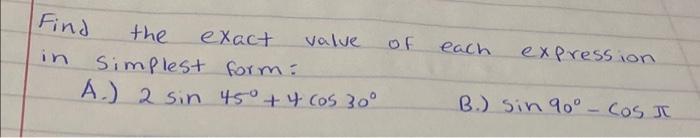 Find the exact value of each expression
in simplest form:
A.) 2 sin 45° + 4 cos 30° B.) sin 90° - cos π